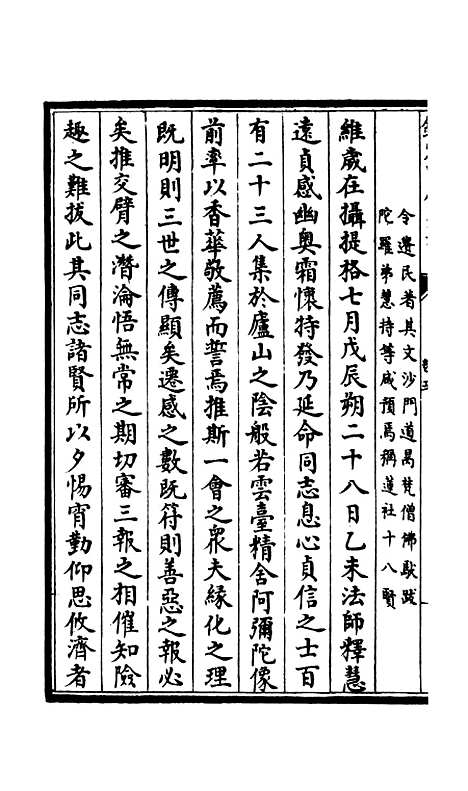 令遺民著其文沙門道昺梵僧佛馱跋
陀羅弟慧持等咸預焉稱蓮社十八賢
維歲在攝提格七月戊辰朔二十八日乙未法師釋慧
遠貞感幽奧霜懷特發乃延命同志息心貞信之士百
有二十三人集於廬山之陰般若雲臺精舍阿彌陀像
前率以香華敬薦而誓焉推斯一會之衆夫緣化之理
既明則三世之傳顯矣遷感之數既符則善惡之報必
矣推交臂之潛淪悟無常之期切審三報之相催知險
趣之難拔此其同志諸賢所以夕惕宵勤仰思攸濟者